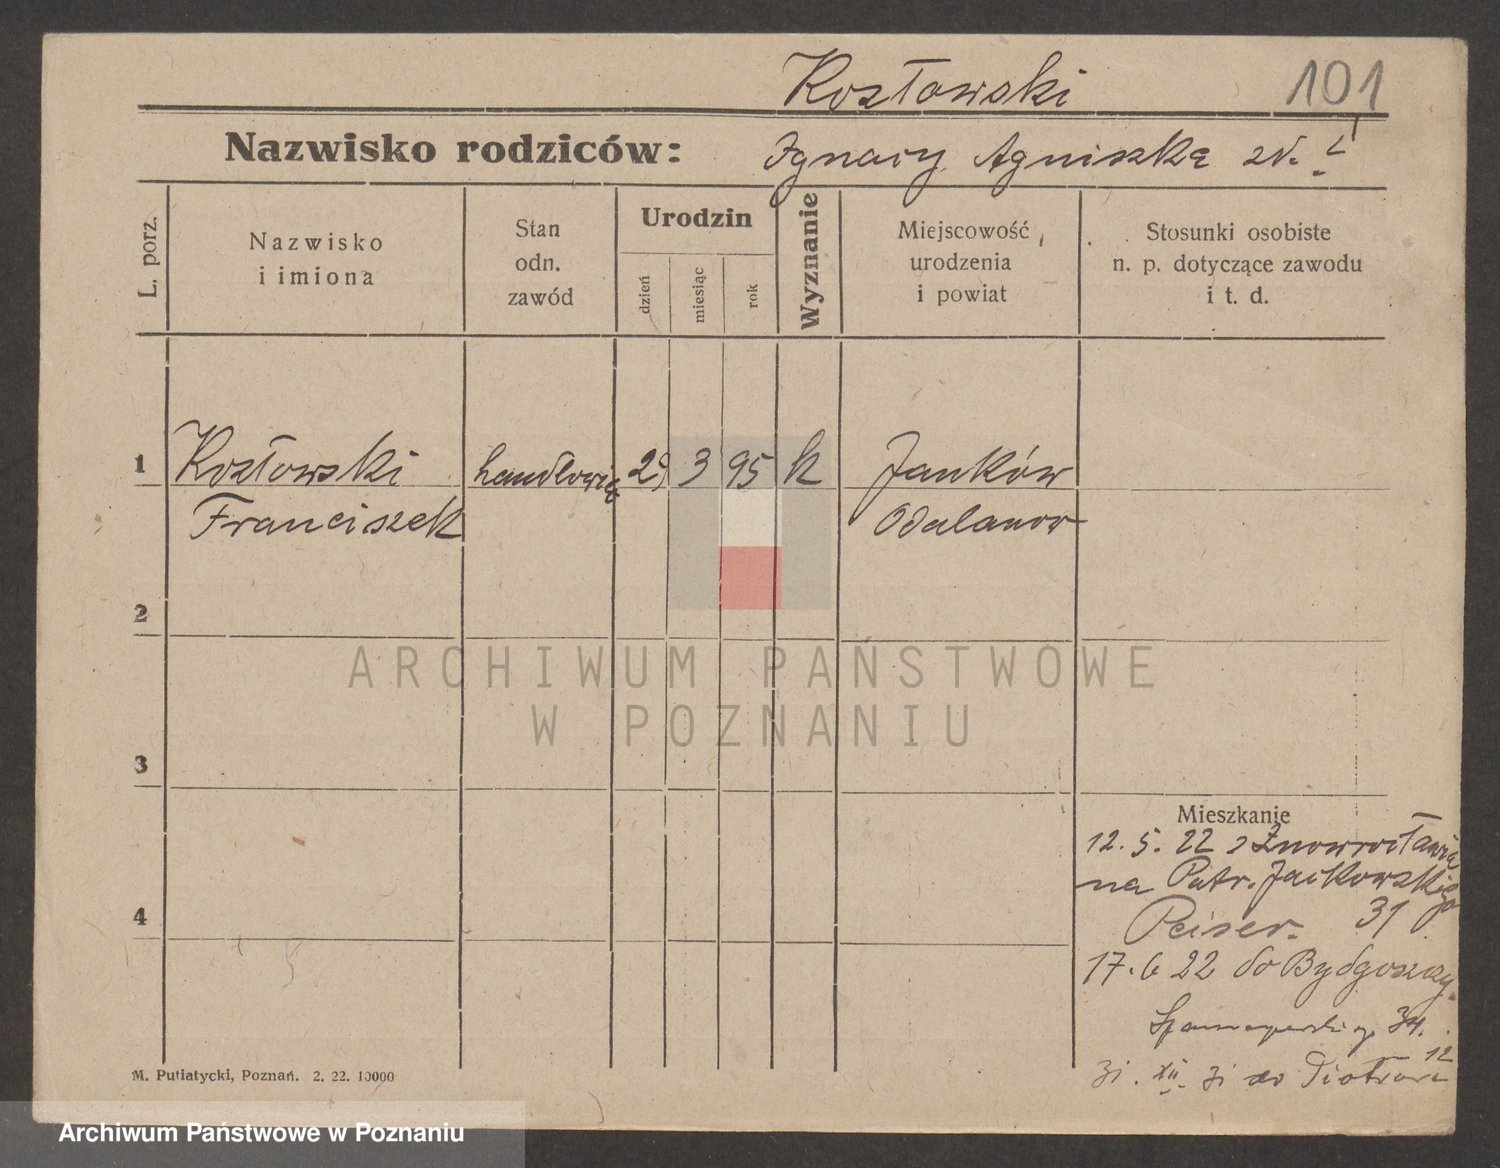 Kozłowski 101
Nazwisko rodziców: Ignacy Agniszka zd.
L. porz.
Nazwisko
i imiona
Stan
odn.
zawód
Urodzin
dzień
miesiąc
rok
Wyznanie
Miejscowość
urodzenia
i powiat
Stosunki osobiste
n. p. dotyczące zawodu
i t. d.
1 Kozłowski handlowiec 29 3 95 k Janków
Franciszek Odalanow
2
ARCHIWUM PAŃSTWOWE
W POZNANIU
3
Mieszkanie
12. 5. 22 z Inowrocławia
na Patr. Jackowskiego
Peiser. 31
4
17. 6 22 do Bydgoszczy
34.
31. XII. 31 do 12
M. Putiatycki, Poznań. 2. 22. 10000
Archiwum Państwowe w Poznaniu